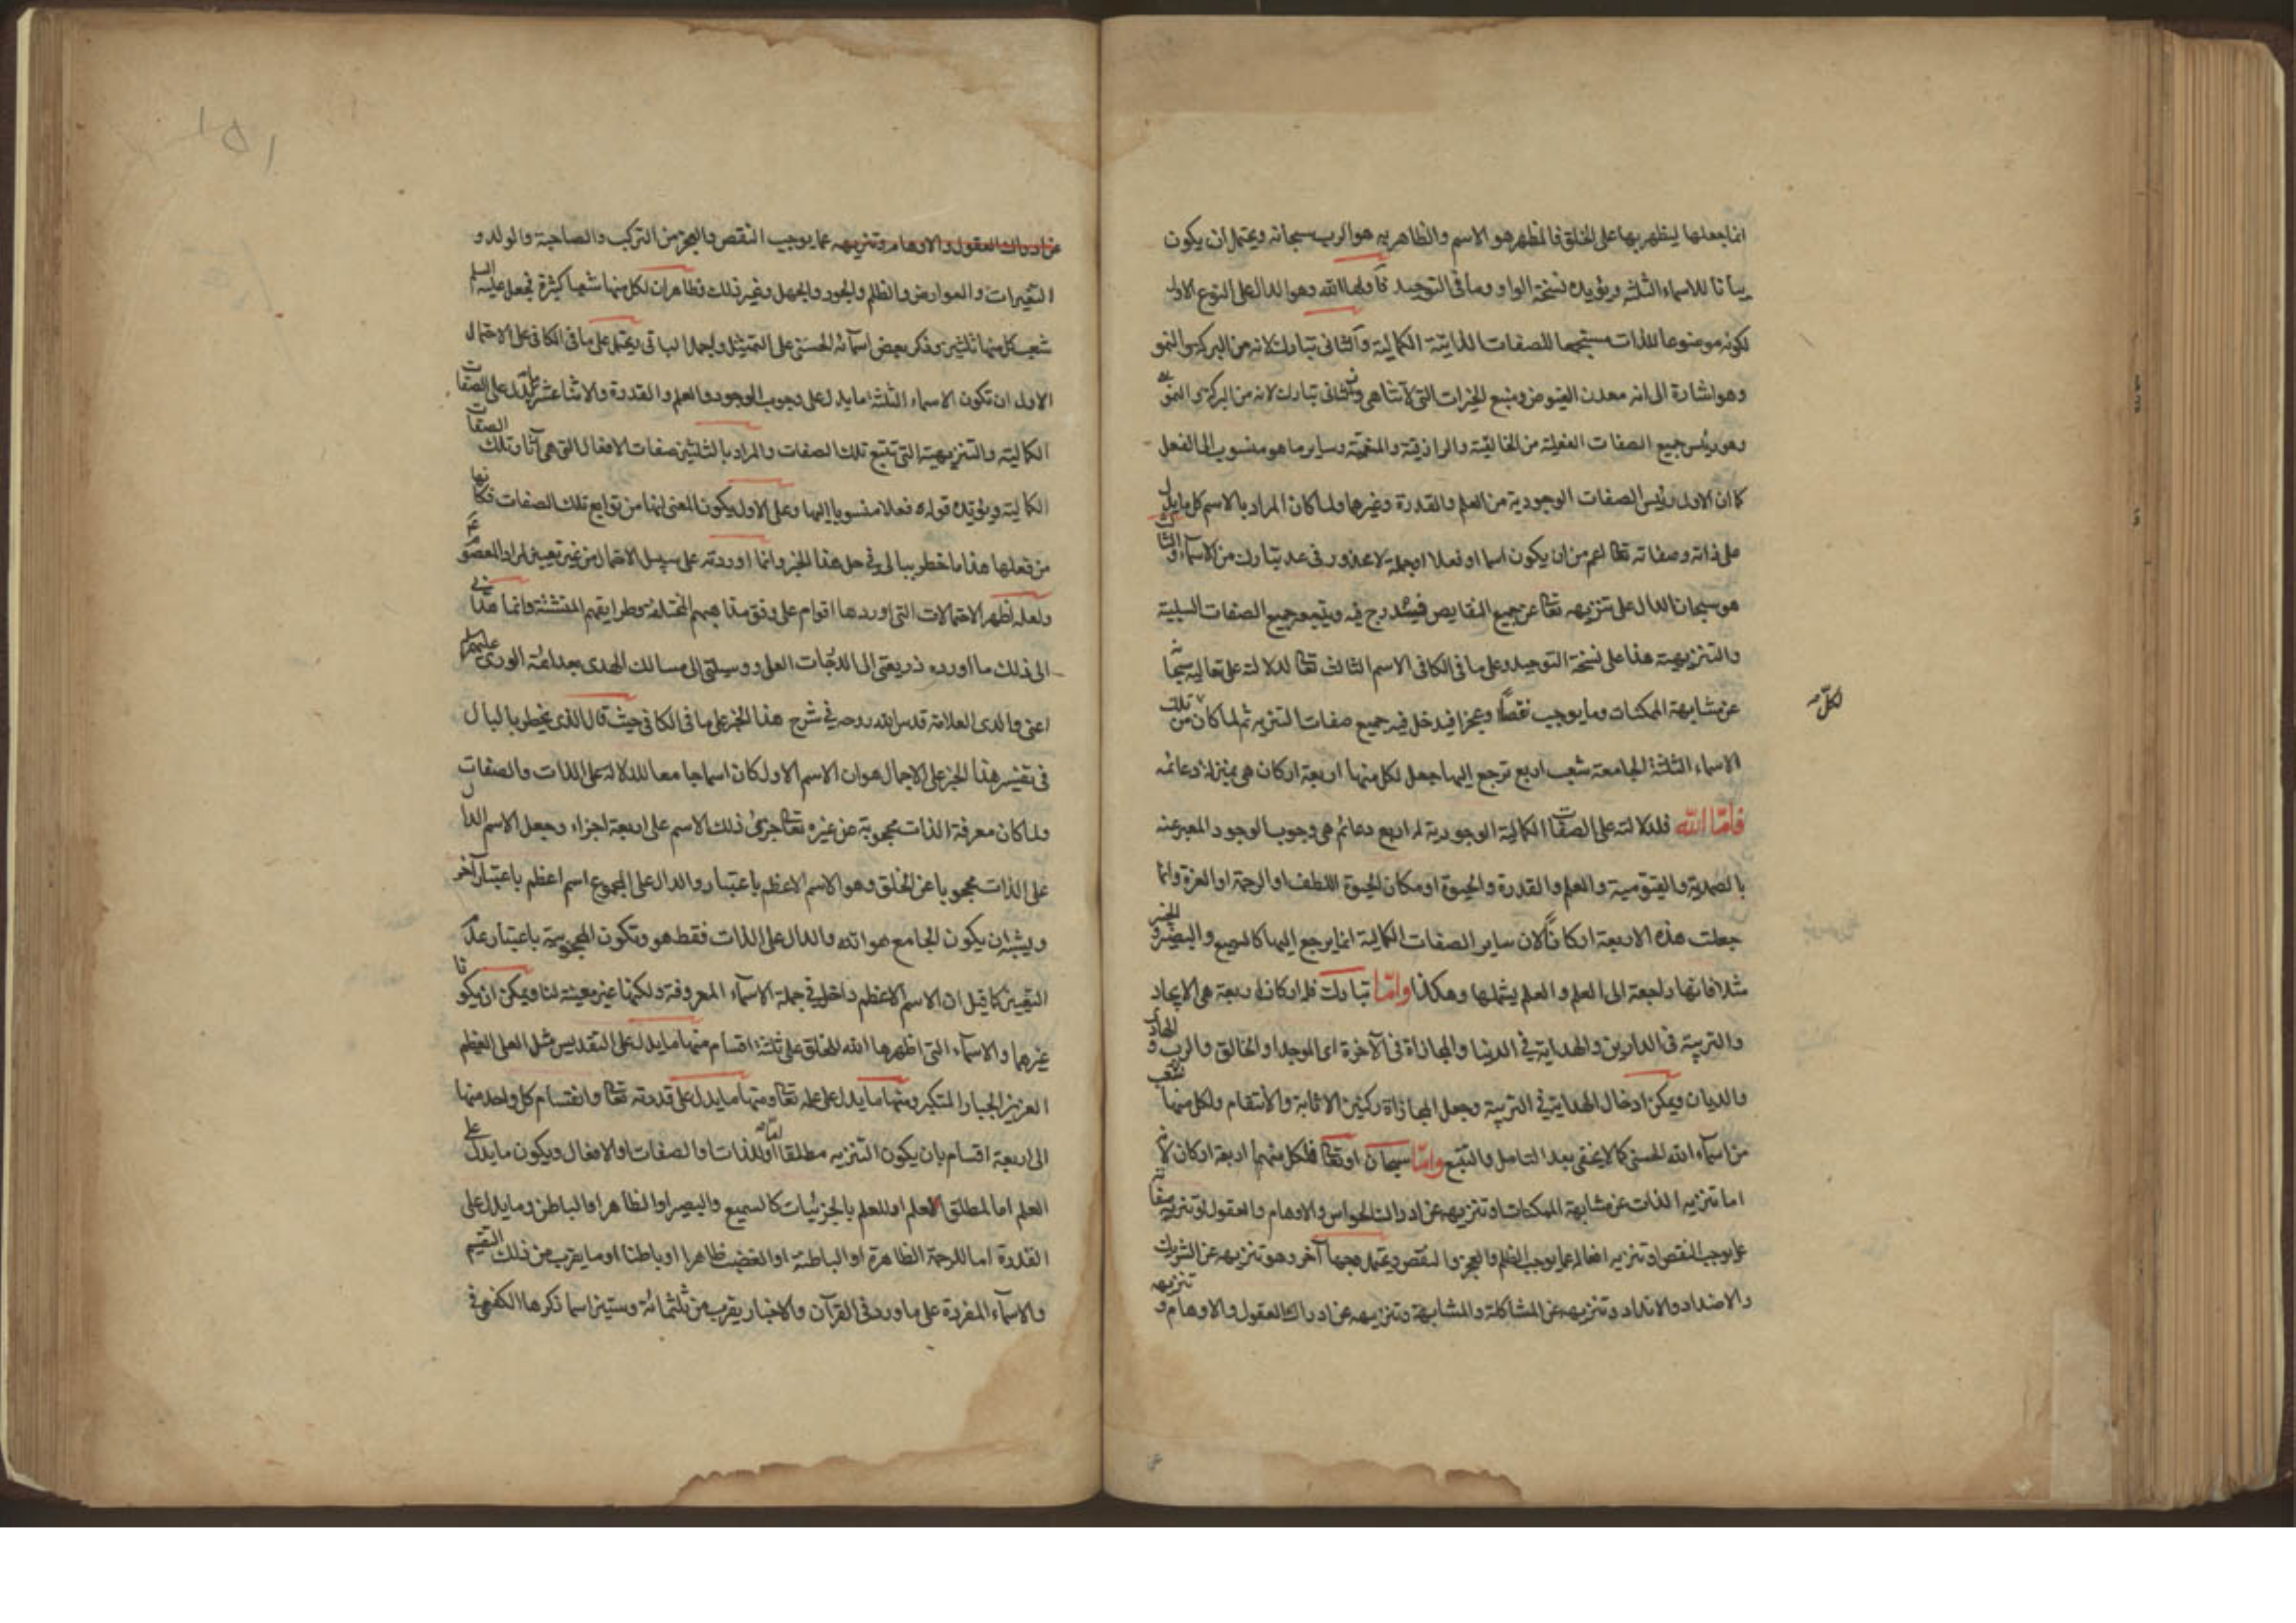 انما جعلها ليظهر بها على الخلق فالمظهر هو الاسم والظاهر به هو الرب سبحانه ويحتمل ان يكون
بيانا للاسماء الثلثة ويؤيده نسخة الواو وما في التوحيد فأولها الله وهو الدال على النوع الاول
لكونه موضوعا للذات مستجمعا للصفات الذاتية الكمالية والثاني تبارك لانه من البركة والنمو
وهو اشارة الى انه معدن الفيوض ومنبع الخيرات التي لا تتناهى والثاني تبارك لانه من البركة والنمو
وهو رئيس جميع الصفات الفعلية من الخالقية والرازقية والمنعمية وساير ما هو منسوب الى الفعل
كما ان الاول رئيس الصفات الوجودية من العلم والقدرة وغيرهما ولما كان المراد بالاسم كل ما يدل
على ذاته وصفاته تعا اعم من ان يكون اسما او فعلا او جملة لا محذور في عد تبارك من الاسماء والثالث
هو سبحان الدال على تنزيهه تعا عن جميع النقايص فيندرج فيه ويتبعه جميع الصفات السلبية
والتنزيهية هذا على نسخة التوحيد وعلى ما في الكافي الاسم الثالث تعا لدلالته على تعاليه سبحا
عن مشابهة الممكنات وما يوجب نقصا وعجزا فيدخل فيه جميع صفات التنزيه ثم لما كان من تلك
لكل
الاسماء الثلثة الجامعة شعب اربع ترجع اليها جعل لكل منها اربعة اركان هي بمنزلة دعائمه
فاما الله فلدلالته على الصفات الكمالية الوجودية له اربع دعائم هي وجوب الوجود المعبر عنه
بالصمدية والقيومية والعلم والقدرة والحيوة او مكان الحيوة اللطف او الرحمة او العزة وانما
جعلت هذه الاربعة اركانا لان ساير الصفات الكمالية انما يرجع اليها كالسميع والبصير والخبير
مثلا فانها راجعة الى العلم والعلم يشملها وهكذا واما تبارك فله اركان اربعة هي الايجاد
والتربية في الدارين والهداية في الدنيا والمجازاة في الآخرة اى الموجد او الخالق والرب والهادى
والديان ويمكن ادخال الهداية في التربية وجعل المجازاة ركنين الاثابة والانتقام ولكل منها شعب
من اسماء الله الحسنى كما لا يخفى بعد التامل والتتبع واما سبحان او تعا فلكل منهما اربعة اركان لانه
اما تنزيه الذات عن مشابهة الممكنات او تنزيهه عن ادراك الحواس والاوهام والعقول او تنزيه صفاته
عما يوجب النقص او تنزيه افعاله عما يوجب الظلم والعجز والنقص ويحتمل وجها آخر وهو تنزيهه عن الشريك
والاضداد والانداد وتنزيهه عن المشاكلة والمشابهة وتنزيهه عن ادراك العقول والاوهام و
تنزيهه
١٥١
عن ادراك العقول والاوهام وتنزيهه عما يوجب النقص والعجز من التركب والصاحبة والولد و
التغيرات والعوارض والظلم والجور والجهل وغير ذلك وظاهر ان لكل منها شعبا كثيرة فجعل عليه السلم
شعب كل منها ثلثين وذكر بعض اسمائه الحسنى على التمثيل واجمل الباقي ويحتمل على ما في الكافي على الاحتمال
الاول ان تكون الاسماء الثلثة ما يدل على وجوب الوجود والعلم والقدرة والاثنا عشر ما يدل على الصفات
الكمالية والتنزيهية التي تتبع تلك الصفات والمراد بالثلثين صفات الافعال التي هي آثار تلك الصفات
الكمالية ويؤيده قوله فعلا منسوبا اليها وعلى الاول يكون المعنى انها من توابع تلك الصفات فكانها
من فعلها هذا ما خطر ببالي في حل هذا الخبر وانما اوردته على سبيل الاحتمال من غير تعيين لمراد المعصوم
ولعله اظهر الاحتمالات التي اوردها اقوام على وفق مذاهبهم المختلفة وطرايقهم المتشتتة وانما هدانى
الى ذلك ما اورده ذريعتي الى الدرجات العلى ووسيلتي الى مسالك الهدى بعد ائمة الورى عليهم السلم
اعني والدى العلامة قدس الله روحه في شرح هذا الخبر على ما في الكافي حيث قال الذى يخطر بالبال
في تفسير هذا الخبر على الاجمال هو ان الاسم الاول كان اسما جامعا للدلالة على الذات والصفات
ولما كان معرفة الذات محجوبة عن غيره تعا جزى ذلك الاسم على اربعة اجزاء وجعل الاسم الدال
على الذات محجوبا عن الخلق وهو الاسم الاعظم باعتبار والدال على المجموع اسم اعظم باعتبار آخر
ويشبه ان يكون الجامع هو الله والدال على الذات فقط هو وتكون المحجوبية باعتبار عدم
التعيين كما قيل ان الاسم الاعظم داخل في جملة الاسماء المعروفة ولكنها غير معينة لنا ويمكن ان يكون
غيرها والاسماء التي اظهرها الله للخلق على ثلثة اقسام منها ما يدل على التقديس مثل العلى العظيم
العزيز الجبار المتكبر ومنها ما يدل على علمه تعا ومنها ما يدل على قدرته تعا وانقسام كل واحد منها
الى اربعة اقسام بان يكون التنزيه اما مطلقا او للذات او الصفات او الافعال ويكون ما يدل على
العلم اما لمطلق العلم او للعلم بالجزئيات كالسميع والبصير او الظاهر او الباطن وما يدل على
القدرة اما للرحمة الظاهرة او الباطنة او الغضب ظاهرا او باطنا او ما يقرب من ذلك التقسيم
والاسماء المفردة على ما ورد في القرآن والاخبار يقرب من ثلثمائة وستين اسما ذكرها الكفعمى في